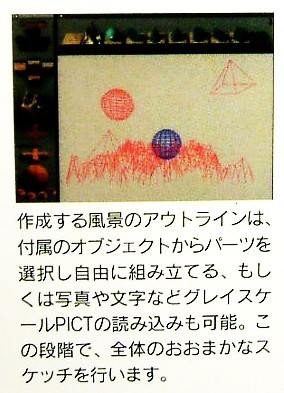 作成する風景のアウトラインは、
付属のオブジェクトからパーツを
選択し自由に組み立てる、もし
くは写真や文字などグレイスケ
ールPICTの読み込みも可能。こ
の段階で、全体のおおまかなス
ケッチを行います。